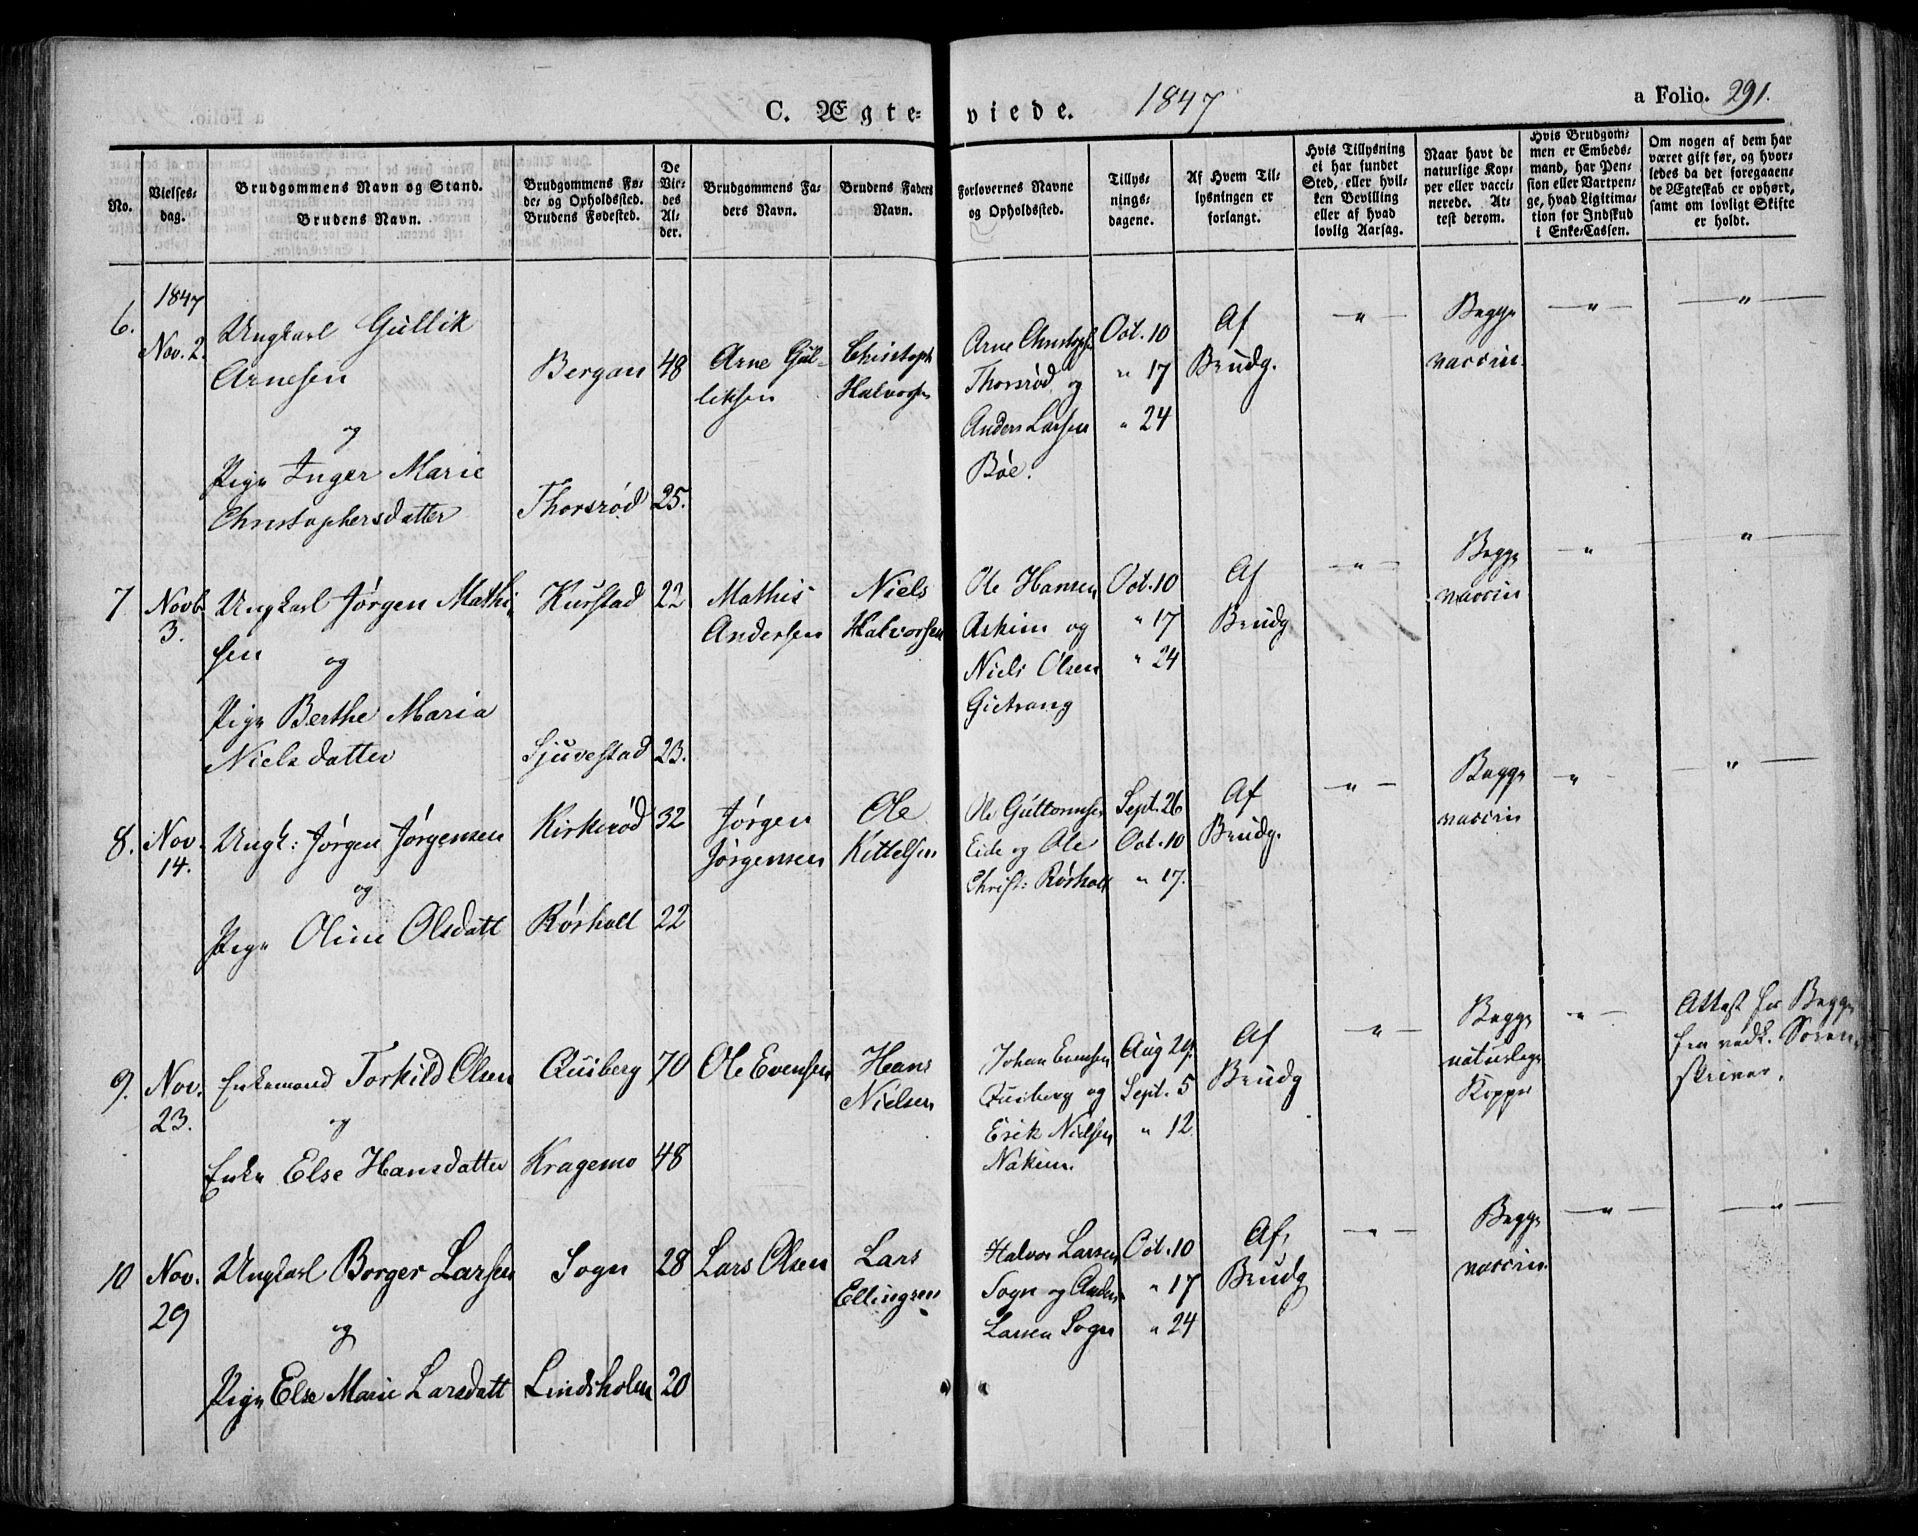 C. Ægte- viede. 1847 a Folio. 291.
No.
Vielses-
dag.
Brudgommens Navn og Stand.
Brudens Navn.
Brudgommens Fø-
de- og Opholdssted.
Brudens Fødested.
De
Vie-
des
Al-
der.
Brudgommens Fa-
ders Navn.
Brudens Faders
Navn.
Forlovernes Navne
og Opholdssted.
Tillys-
nings-
dagene.
Af Hvem Til-
lysningen er
forlangt.
Hvis Tillysning
ei har fundet
Sted, eller hvil-
ken Bevilling
eller af hvad
lovlig Aarsag.
Naar havt de
naturlige Kop-
per eller vacci-
nerede. At-
test derom.
Hvis Brudgom-
men er Embeds-
mand, har Pen-
sion eller Vartpen-
ge, hvad Ligitima-
tion for Indskud
i Enke-Cassen.
Om nogen af dem har
været gift før, og hvor-
ledes da det foregaaen-
de Ægteskab er ophørt,
samt om lovligt Skifte
er holdt.
6.
1847
Nov. 2.
Ungkarl Gullik
Arnesen
og
Pige Inger Marie
Christophersdatter
Bergan
Thorsrød
48
25.
Arne Gul-
liksen
Christoph
Halvorsen
Arne Christophs
Thorsrød og
Anders Larsen
Bøe.
Oct. 10
" 17
" 24
Af
Brudg.
"
Begge
vaccin.
"
"
7.
Novb.
3.
Ungkarl Jørgen Mathi-
sen og
Pige Berthe Maria
Nielsdatter
Kurstad
Sjuvestad
22
23.
Mathis
Andersen
Niels
Halvorsen
Ole Hansen
Askim og
Niels Olsen
Gietrang
Oct. 10
" 17
" 24
Af
Brudg
"
Begge
vaccin
"
"
8.
Nov.
14.
Ungk: Jørgen Jørgensen
og
Pige Oline Olsdatt
Kirkerød
Rørholt
32
22
Jørgen
Jørgensen
Ole
Kittelsen
Ole Guttormsen
Eide og Ole
Christ: Rørholt
Sept. 26
Oct. 10
" 17.
Af
Brudg.
"
Begge
vaccin
"
"
9.
Nov.
23.
Enkemand Torkild Olsen
og
Enke Else Hansdatter
Quiberg
Kragemo
70
48
Ole Evensen
Hans
Nielsen
Johan Evensen
Quiberg og
Erik Nielsen
Nakim.
Aug 29.
Sept. 5
" 12
Af
Brudg
"
Begge
naturlege
Kopper
"
Attest for Begge
fra vedk. Soren-
skriver.
10
Nov.
29
Ungkarl Borger Larsen
og
Pige Else Marie Larsdatt
Sogn
Lindsholm
28
20
Lars Olsen
Lars
Ellingsen
Halvor Larsen
Sogn og Anders
Larsen Sogn
Oct. 10
" 17
" 24
Af
Brudg
"
Begge
vaccin.
"
"